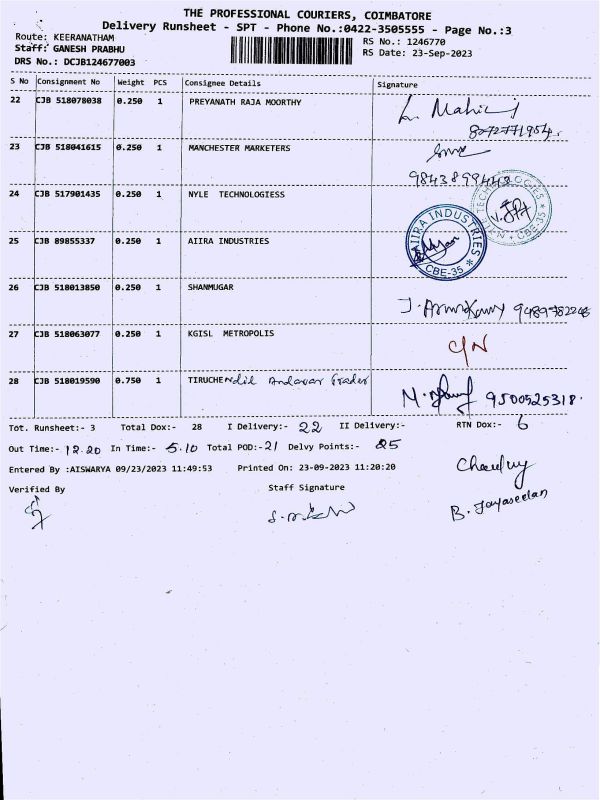 THE PROFESSIONAL COURIERS, COIMBATORE
Delivery Runsheet - SPT - Phone No.:0422-3505555 - Page No.:3
Route: KEERANATHAM
RS No.: 1246770
Staff: GANESH PRABHU
RS Date: 23-Sep-2023
DRS No.: DCJB124677003
S No Consignment No Weight PCS Consignee Details Signature
22 CJB 518078038 0.250 1 PREYANATH RAJA MOORTHY
23 CJB 518041615 0.250 1 MANCHESTER MARKETERS
24 CJB 517901435 0.250 1 NYLE TECHNOLOGIESS
25 CJB 89855337 0.250 1 AIIRA INDUSTRIES AIIRA INDUSTRIES * CBE-35 *
26 CJB 518013850 0.250 1 SHANMUGAR 9489782248
27 CJB 518063077 0.250 1 KGISL METROPOLIS C/N
28 CJB 518019590 0.750 1 TIRUCHENdil Andavar Trader 9500525318.
Tot. Runsheet:- 3 Total Dox:- 28 I Delivery:- 22 II Delivery:- RTN Dox:- 6
Out Time:- 12.20 In Time:- 5.10 Total POD:- 21 Delvy Points:- 25
Entered By :AISWARYA 09/23/2023 11:49:53 Printed On: 23-09-2023 11:20:20
Verified By Staff Signature
B. Jayaseelan